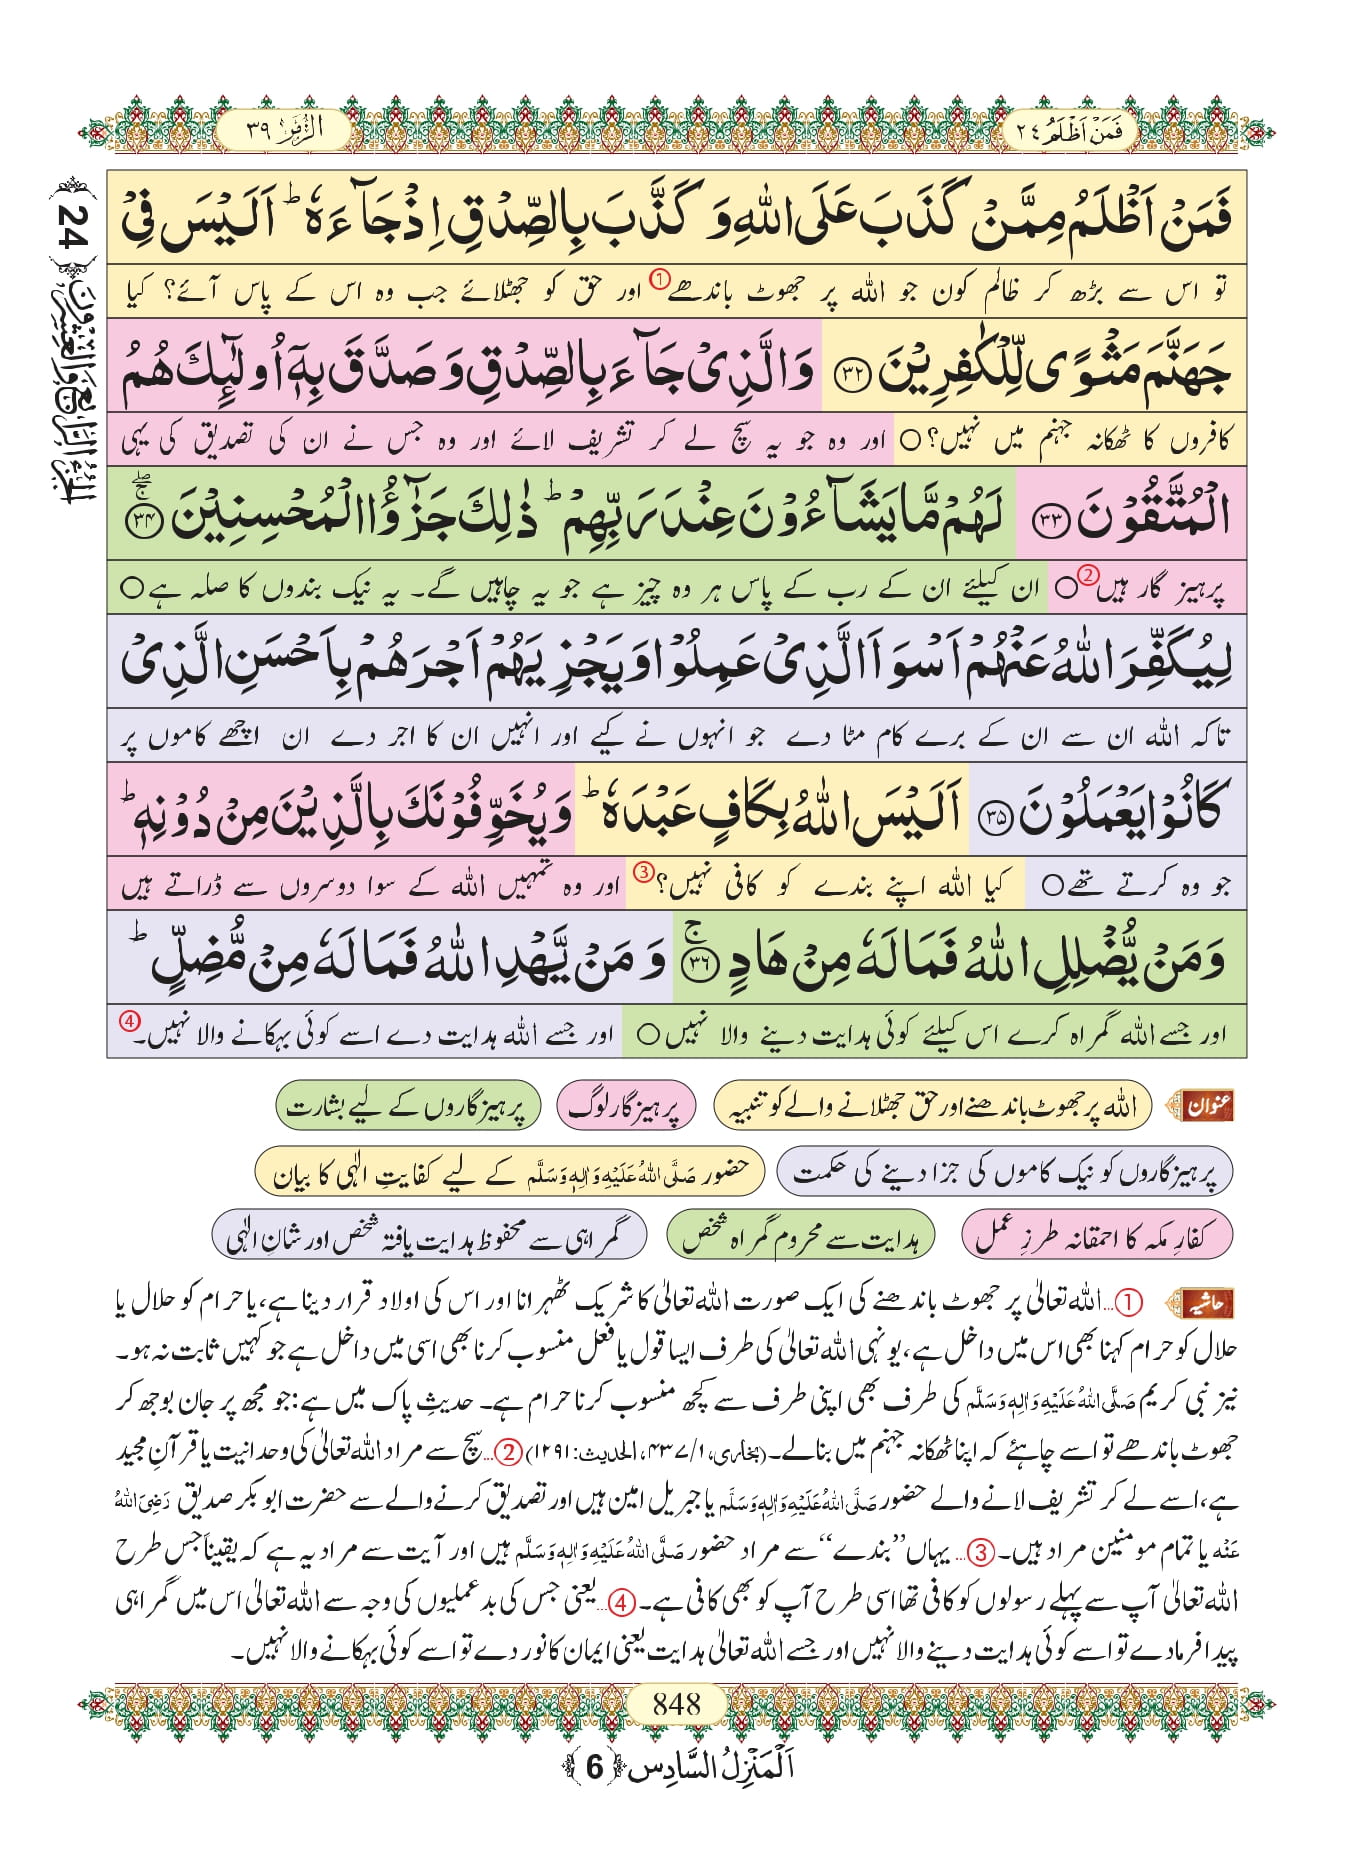 فَمَنۡ اَظۡلَمُ ۲۴
الزُّمَر ۳۹
الجُزْءُ الرَّابِعُ وَالعِشْرُون ﴿24﴾
فَمَنۡ اَظۡلَمُ مِمَّنۡ كَذَبَ عَلَى اللّٰهِ وَ كَذَّبَ بِالصِّدۡقِ اِذۡ جَآءَهٗ ؕ اَلَيۡسَ فِىۡ
تو اس سے بڑھ کر ظالم کون جو اللہ پر جھوٹ باندھے① اور حق کو جھٹلائے جب وہ اس کے پاس آئے؟ کیا
جَهَنَّمَ مَثۡوًى لِّلۡكٰفِرِيۡنَ ﴿۳۲﴾ وَالَّذِىۡ جَآءَ بِالصِّدۡقِ وَ صَدَّقَ بِهٖۤ اُولٰٓئِكَ هُمُ
کافروں کا ٹھکانہ جہنم میں نہیں؟○ اور وہ جو یہ سچ لے کر تشریف لائے اور وہ جس نے ان کی تصدیق کی یہی
الۡمُتَّقُوۡنَ ﴿۳۳﴾ لَهُمۡ مَّا يَشَآءُوۡنَ عِنۡدَ رَبِّهِمۡ ؕ ذٰلِكَ جَزٰٓؤُا الۡمُحۡسِنِيۡنَ ﴿۳۴﴾ۚۖ
پرہیز گار ہیں②○ ان کیلئے ان کے رب کے پاس ہر وہ چیز ہے جو یہ چاہیں گے۔ یہ نیک بندوں کا صلہ ہے○
لِيُكَفِّرَ اللّٰهُ عَنۡهُمۡ اَسۡوَاَ الَّذِىۡ عَمِلُوۡا وَ يَجۡزِيَهُمۡ اَجۡرَهُمۡ بِاَحۡسَنِ الَّذِىۡ
تاکہ اللہ ان سے ان کے برے کام مٹا دے جو انہوں نے کیے اور انہیں ان کا اجر دے ان اچھے کاموں پر
كَانُوۡا يَعۡمَلُوۡنَ ﴿۳۵﴾ اَلَيۡسَ اللّٰهُ بِكَافٍ عَبۡدَهٗ ؕ وَ يُخَوِّفُوۡنَكَ بِالَّذِيۡنَ مِنۡ دُوۡنِهٖ ؕ
جو وہ کرتے تھے○ کیا اللہ اپنے بندے کو کافی نہیں؟③ اور وہ تمہیں اللہ کے سوا دوسروں سے ڈراتے ہیں
وَمَنۡ يُّضۡلِلِ اللّٰهُ فَمَا لَهٗ مِنۡ هَادٍ ﴿۳۶﴾ۚ وَ مَنۡ يَّهۡدِ اللّٰهُ فَمَا لَهٗ مِنۡ مُّضِلٍّ ؕ
اور جسے اللہ گمراہ کرے اس کیلئے کوئی ہدایت دینے والا نہیں○ اور جسے اللہ ہدایت دے اسے کوئی بہکانے والا نہیں۔④
عنوان اللہ پر جھوٹ باندھنے اور حق جھٹلانے والے کو تنبیہ پرہیزگار لوگ پرہیزگاروں کے لیے بشارت
پرہیزگاروں کو نیک کاموں کی جزا دینے کی حکمت حضور صَلَّی اللہُ عَلَیْہِ وَاٰلِہٖ وَسَلَّم کے لیے کفایتِ الٰہی کا بیان
کفارِ مکہ کا احمقانہ طرزِ عمل ہدایت سے محروم گمراہ شخص گمراہی سے محفوظ ہدایت یافتہ شخص اور شانِ الٰہی
حاشیہ ①...اللہ تعالیٰ پر جھوٹ باندھنے کی ایک صورت اللہ تعالیٰ کا شریک ٹھہرانا اور اس کی اولاد قرار دینا ہے، یا حرام کو حلال یا
حلال کو حرام کہنا بھی اس میں داخل ہے، یونہی اللہ تعالیٰ کی طرف ایسا قول یا فعل منسوب کرنا بھی اسی میں داخل ہے جو کہیں ثابت نہ ہو۔
نیز نبی کریم صَلَّی اللہُ عَلَیْہِ وَاٰلِہٖ وَسَلَّم کی طرف بھی اپنی طرف سے کچھ منسوب کرنا حرام ہے۔ حدیثِ پاک میں ہے: جو مجھ پر جان بوجھ کر
جھوٹ باندھے تو اسے چاہئے کہ اپنا ٹھکانہ جہنم میں بنالے۔ (بخاری، ۱/۴۳۷، الحدیث: ۱۲۹۱) ②...سچ سے مراد اللہ تعالیٰ کی وحدانیت یا قرآنِ مجید
ہے، اسے لے کر تشریف لانے والے حضور صَلَّی اللہُ عَلَیْہِ وَاٰلِہٖ وَسَلَّم یا جبریل امین ہیں اور تصدیق کرنے والے سے حضرت ابو بکر صدیق رَضِیَ اللہُ
عَنْہ یا تمام مومنین مراد ہیں۔ ③... یہاں ’’بندے‘‘ سے مراد حضور صَلَّی اللہُ عَلَیْہِ وَاٰلِہٖ وَسَلَّم ہیں اور آیت سے مراد یہ ہے کہ یقیناً جس طرح
اللہ تعالیٰ آپ سے پہلے رسولوں کو کافی تھا اسی طرح آپ کو بھی کافی ہے۔ ④...یعنی جس کی بدعملیوں کی وجہ سے اللہ تعالیٰ اس میں گمراہی
پیدا فرمادے تو اسے کوئی ہدایت دینے والا نہیں اور جسے اللہ تعالیٰ ہدایت یعنی ایمان کا نور دے تو اسے کوئی بہکانے والا نہیں۔
848
اَلْمَنْزِلُ السَّادِس ﴿6﴾